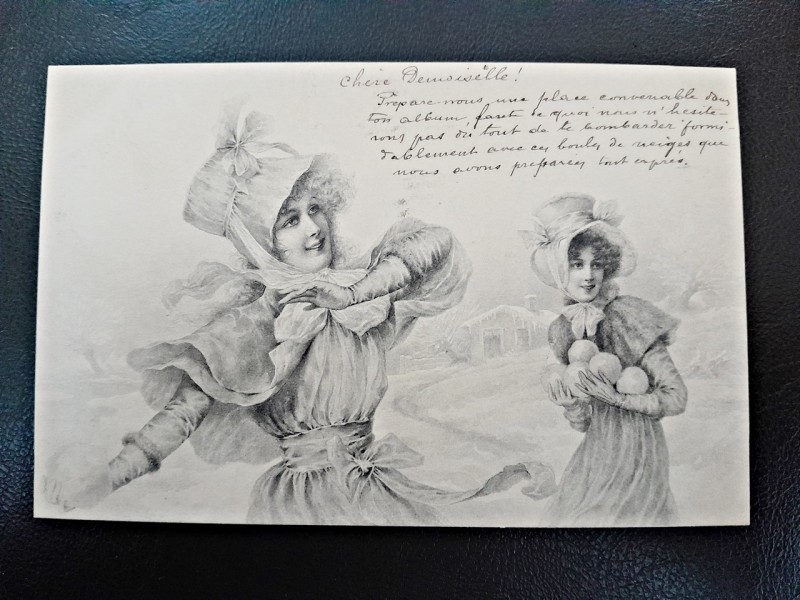 Chère Demoisèlle!
Prépare-nous une place convenable dans
ton album, faute de quoi nous n'hesite-
rons pas du tout de te bombarder formi-
dablement avec ces boules de neiges que
nous avons preparées tout exprès.